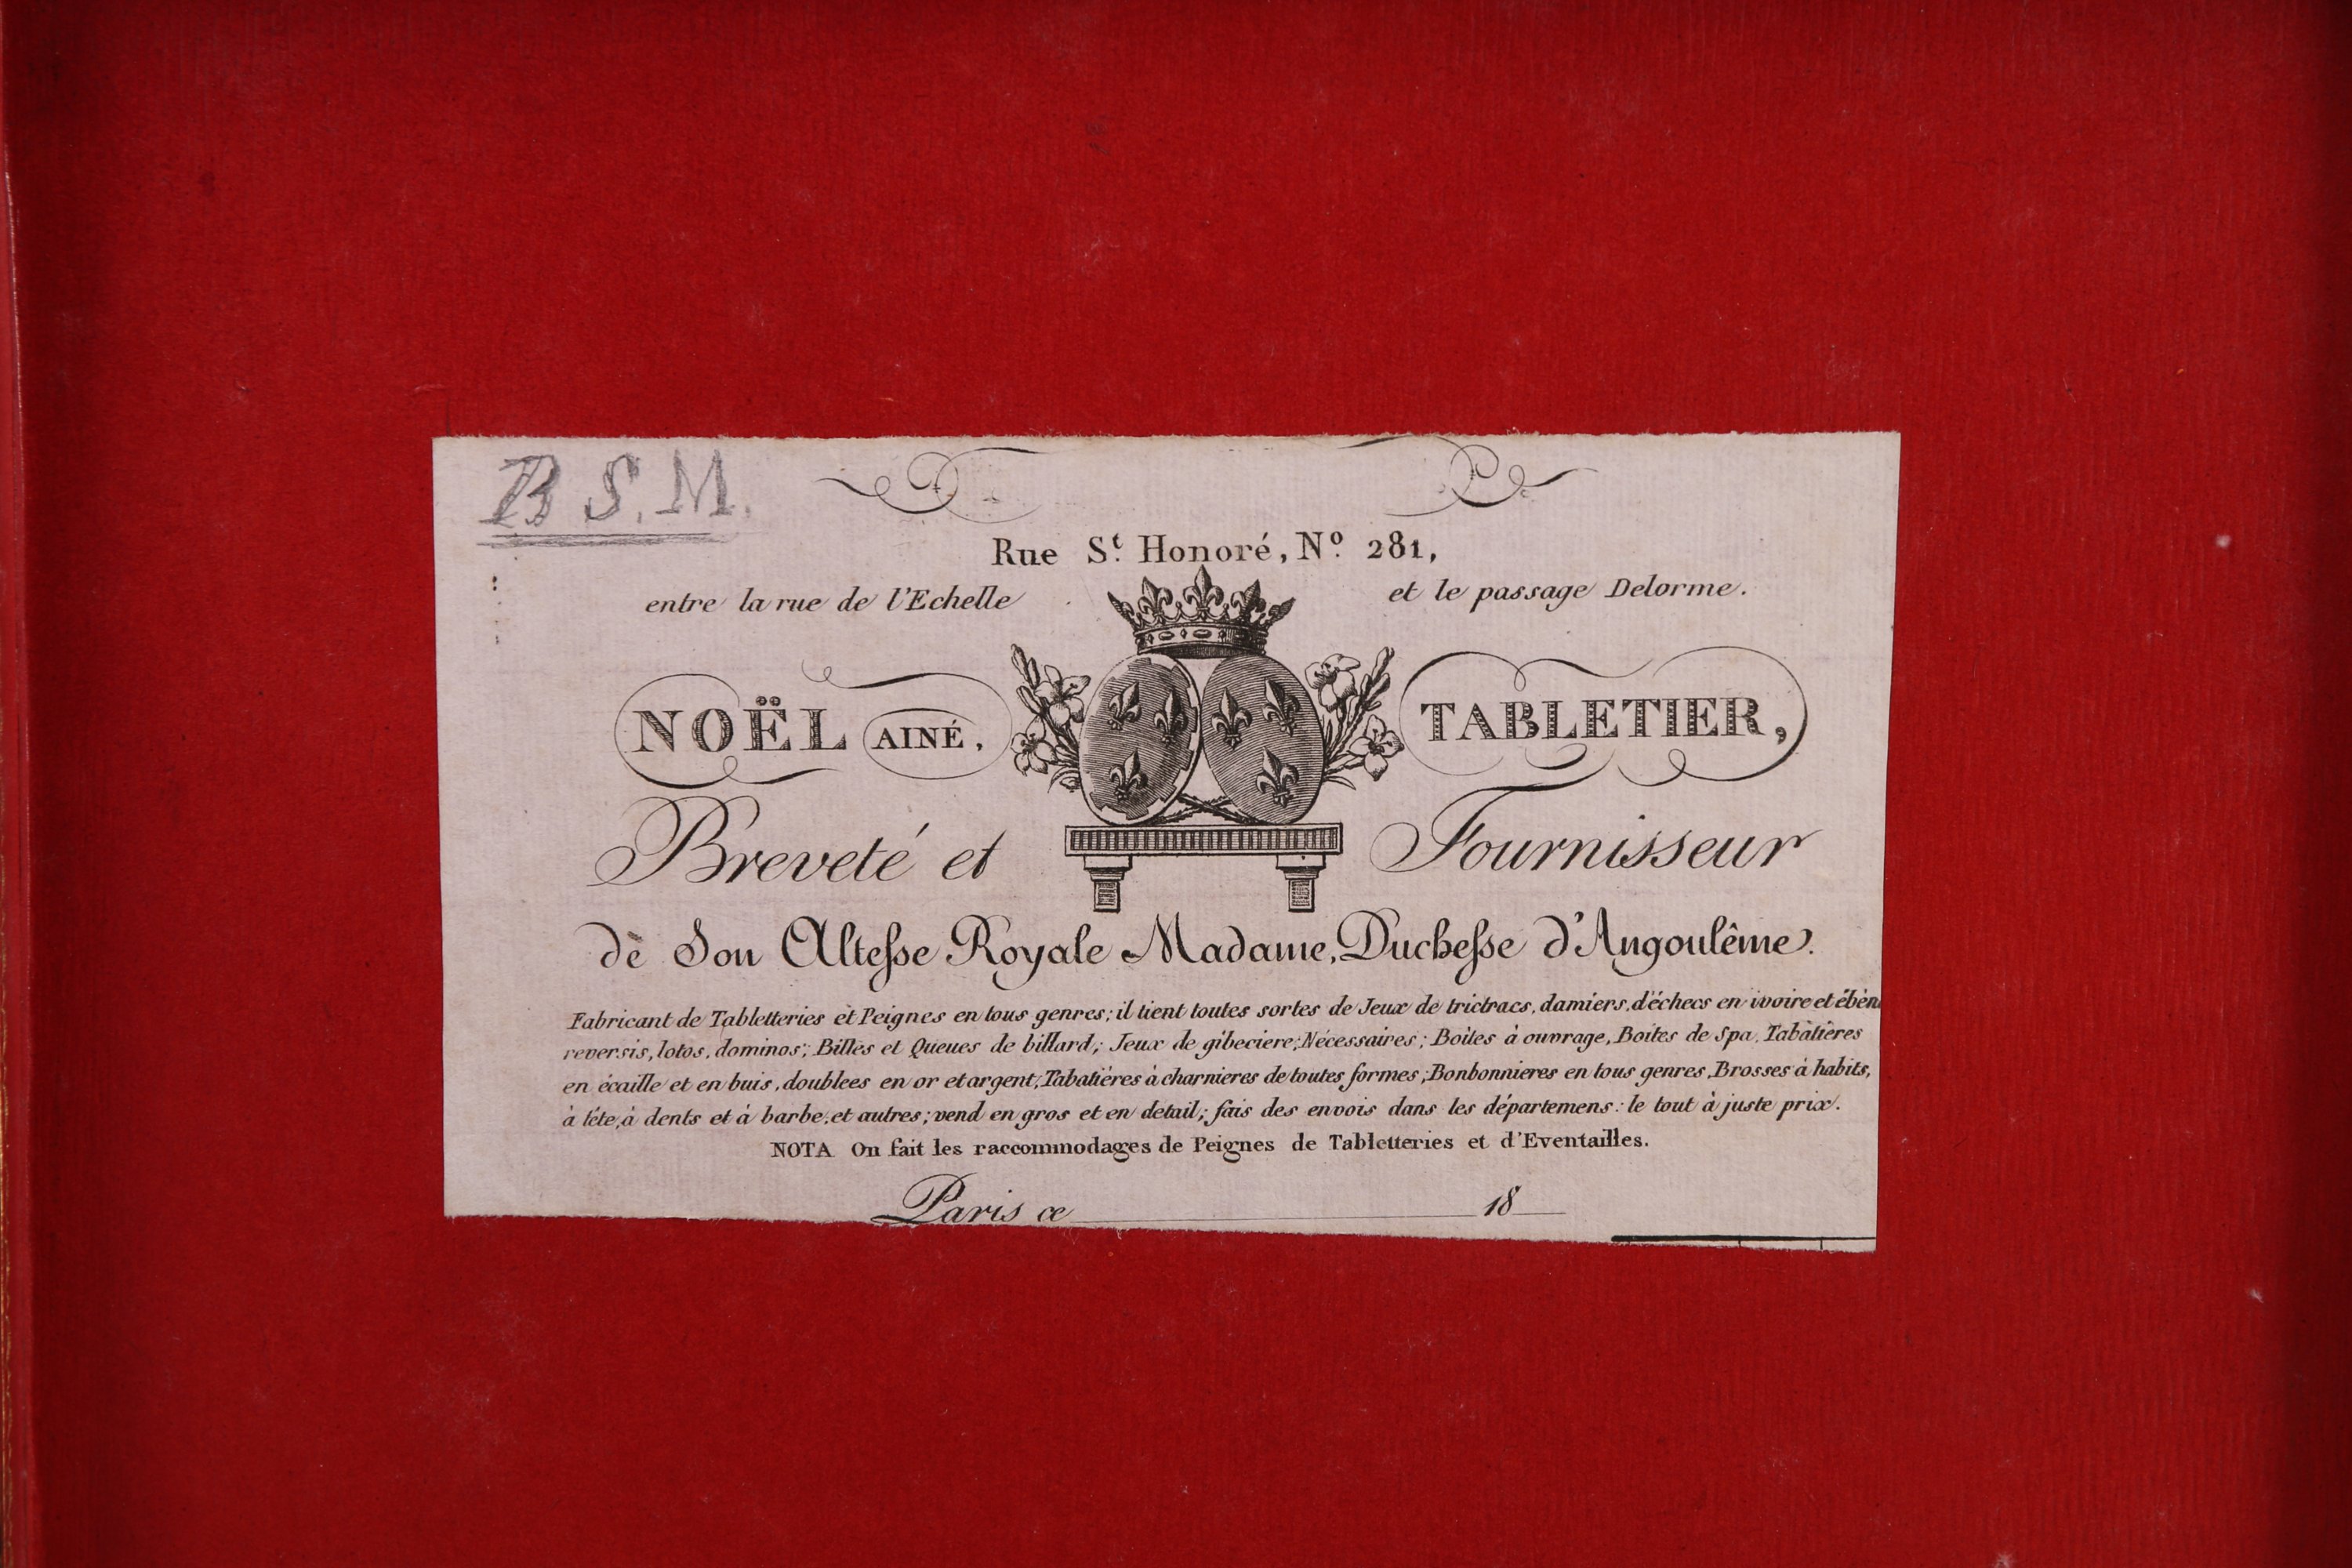 B S. M.
Rue St. Honoré, No. 281,
entre la rue de l'Echelle et le passage Delorme.
NOËL AINÉ, TABLETIER,
Breveté et Fournisseur
de Son Altesse Royale Madame, Duchesse d'Angoulême.
Fabricant de Tabletteries et Peignes en tous genres; il tient toutes sortes de Jeux de trictracs, damiers, d'échecs en ivoire et ébèn
reversis, lotos, dominos; Billes et Queues de billard; Jeux de gibeciere; Nécessaires; Boites à ouvrage, Boites de Spa, Tabatières
en écaille et en buis, doublees en or et argent; Tabatières à charnieres de toutes formes; Bonbonnieres en tous genres, Brosses à habits,
à tête, à dents et à barbe, et autres; vend en gros et en detail; fais des envois dans les départemens: le tout à juste prix.
NOTA On fait les raccommodages de Peignes de Tabletteries et d'Eventailles.
Paris ce 18